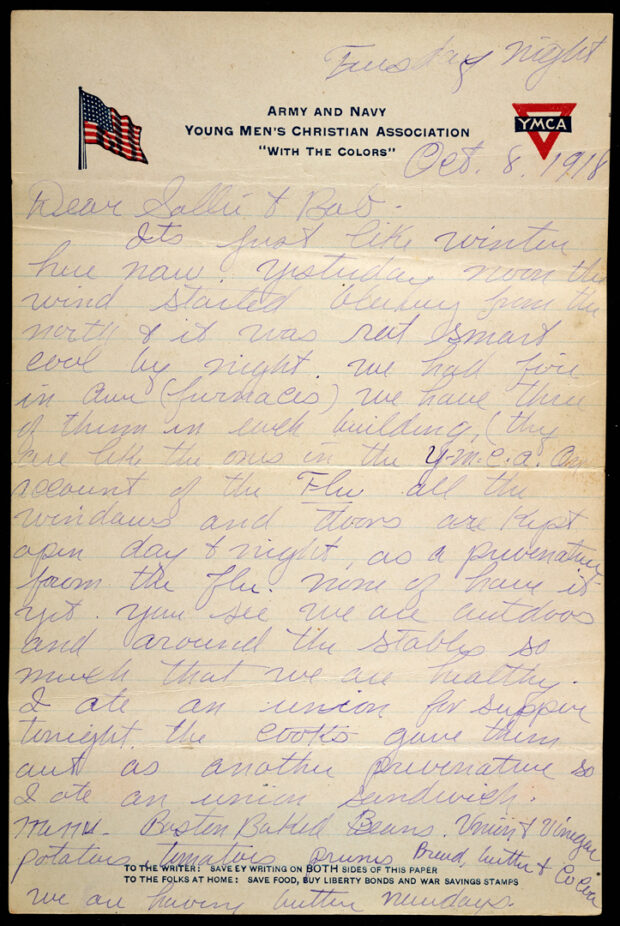 Tuesday night
ARMY AND NAVY
YOUNG MEN'S CHRISTIAN ASSOCIATION
"WITH THE COLORS"
YMCA
Oct. 8, 1918
Dear Sallie & Bob -
Its just like winter
here now. yesterday noon the
wind started blowing from the
north & it was real smart
cool by night. we had fire
in our (furnaces) we have three
of them in each building, (they
are like the ones in the Y.M.C.A. On
account of the Flu all the
windows and doors are kept
open day & night, as a prevenative
from the flu. none of have it
yet. you see we are outdoos
and around the stables so
much that we are healthy.
I ate an union for supper
tonight. the cooks gave them
out as another prevenative so
I ate an union sandwich.
menu - Boston Baked Beans. Union & Vinegar
potatoes, tomatoes prunes Bread, butter & Cocoa
TO THE WRITER: SAVE BY WRITING ON BOTH SIDES OF THIS PAPER
TO THE FOLKS AT HOME: SAVE FOOD, BUY LIBERTY BONDS AND WAR SAVINGS STAMPS
we are having butter nowdays.